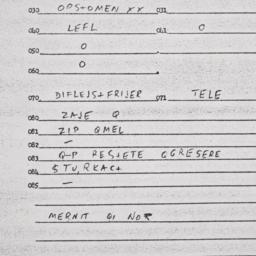 030 OPS+OMEN XX 031
040 LEFL 041 O
050 O
060 O
070 DIFLEJS+FRIJER 071 TELE
080 ZAJE Q
081 ZIP QMEL
082 —
083 Q-P RESTETE GGRESERE
084 STU, RKAC+
085 —
MERNIT QI NOR